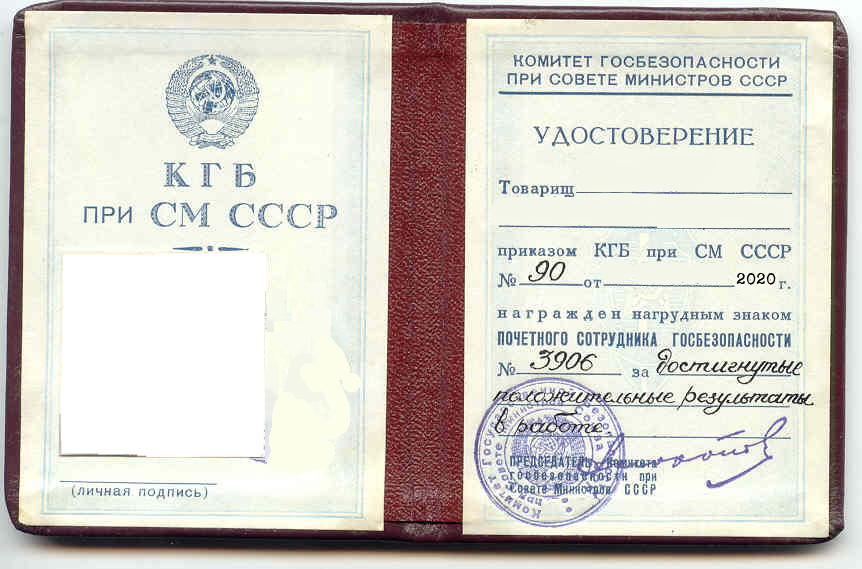 КГБ
ПРИ СМ СССР
(личная подпись)
КОМИТЕТ ГОСБЕЗОПАСНОСТИ
ПРИ СОВЕТЕ МИНИСТРОВ СССР
УДОСТОВЕРЕНИЕ
Товарищ
приказом КГБ при СМ СССР
№ 90 от 2020 г.
награжден нагрудным знаком
ПОЧЕТНОГО СОТРУДНИКА ГОСБЕЗОПАСНОСТИ
№ 3906 за достигнутые
положительные результаты
в работе
ПРЕДСЕДАТЕЛЬ Комитета
госбезопасности при
Совете Министров СССР